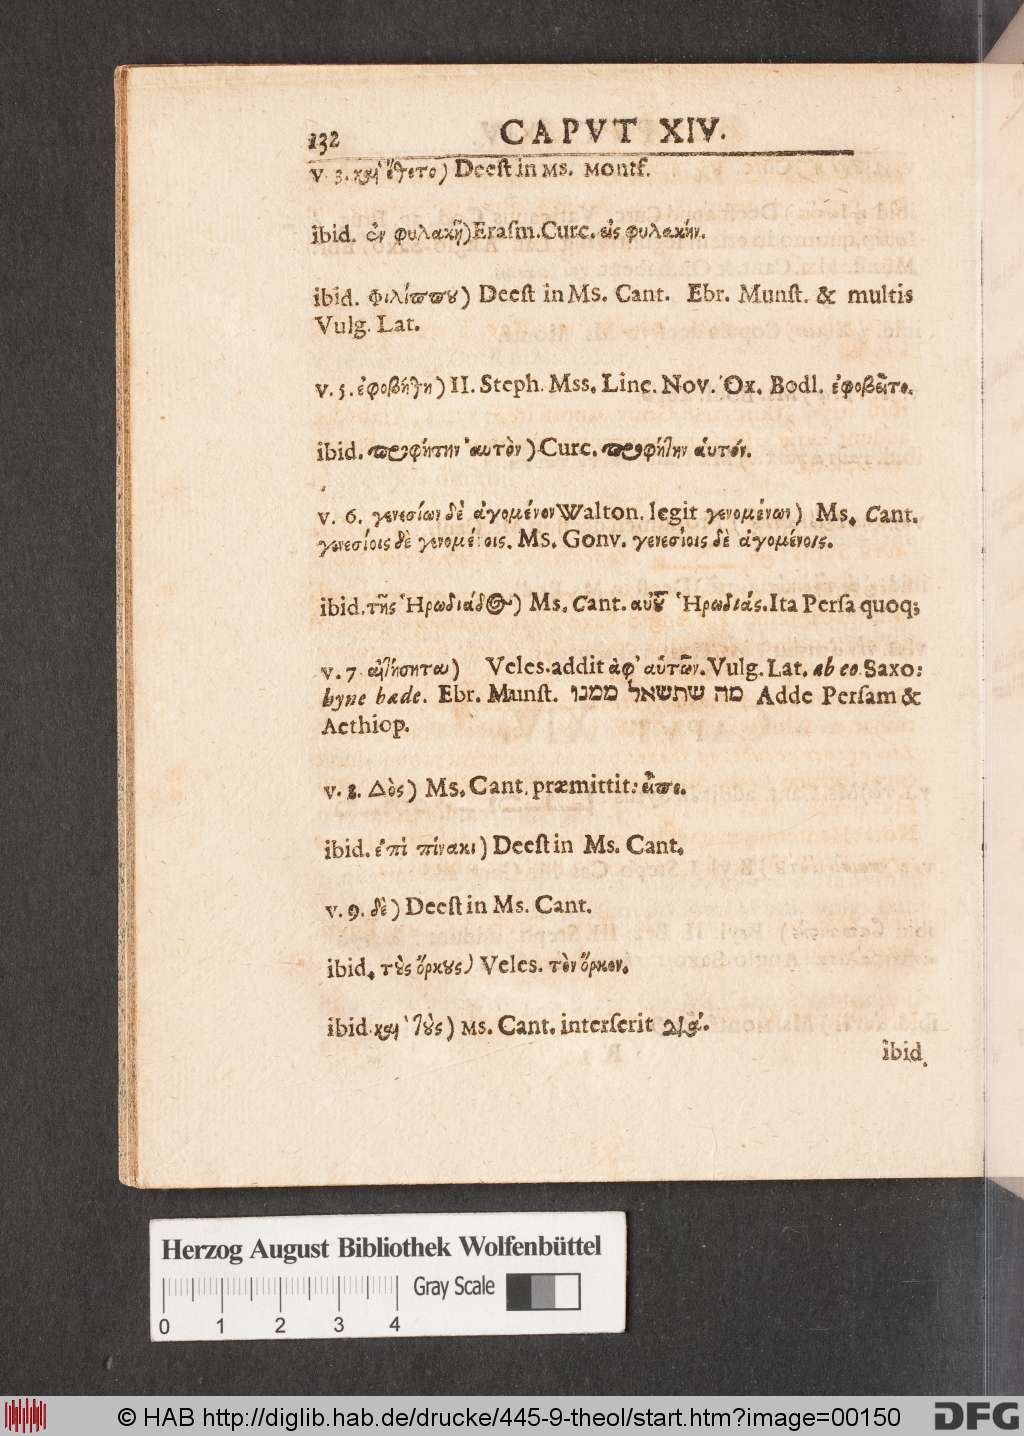 132 CAPVT XIV.
v. 3. καὶ ἔθετο) Deeſt in Ms. Montf.
ibid. ἐν φυλακῇ) Eraſm. Curc. εἰς φυλακήν.
ibid. Φιλίππου) Deeſt in Ms. Cant. Ebr. Munſt. & multis
Vulg. Lat.
v. 5. ἐφοβήθη) II. Steph. Mss. Linc. Nov. Ox. Bodl. ἐφοβεῖτο.
ibid. προφήτην αυτὸν) Curc. προφήτην αὑτόν.
v. 6. γενεσίων δὲ ἀγομένον Walton. legit γενομένων) Ms. Cant.
γενεσίοις δὲ γενομένοις. Ms. Gonv. γενεσίοις δὲ ἀγομένοις.
ibid. τῆς Ἡρωδιάδος) Ms. Cant. αυτοῦ Ἡρωδιάς. Ita Perſa quoq;
v. 7. αἰτήσηται) Veles. addit ἀφ' αὑτῶν. Vulg. Lat. ab eo. Saxo:
hyne bade. Ebr. Munſt. מה שתשאל ממנו Adde Perſam &
Aethiop.
v. 8. Δὸς) Ms. Cant. præmittit: εἶπε.
ibid. ἐπὶ πίνακι) Deeſt in Ms. Cant.
v. 9. δὲ) Deeſt in Ms. Cant.
ibid. τοὺς ὅρκους) Veles. τὸν ὅρκον.
ibid. καὶ τοὺς) Ms. Cant. interſerit διά.
ibid.
Herzog August Bibliothek Wolfenbüttel
Gray Scale
0 1 2 3 4
© HAB http://diglib.hab.de/drucke/445-9-theol/start.htm?image=00150 DFG